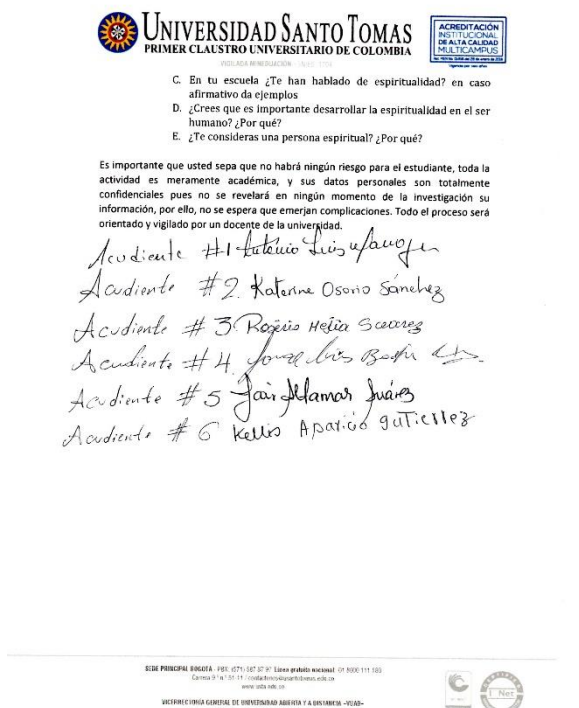 UNIVERSIDAD SANTO TOMAS
PRIMER CLAUSTRO UNIVERSITARIO DE COLOMBIA
VIGILADA MINEDUCACIÓN - SNIES 1704
ACREDITACIÓN
INSTITUCIONAL
DE ALTA CALIDAD
MULTICAMPUS
C. En tu escuela ¿Te han hablado de espiritualidad? en caso
afirmativo da ejemplos
D. ¿Crees que es importante desarrollar la espiritualidad en el ser
humano? ¿Por qué?
E. ¿Te consideras una persona espiritual? ¿Por qué?
Es importante que usted sepa que no habrá ningún riesgo para el estudiante, toda la
actividad es meramente académica, y sus datos personales son totalmente
confidenciales pues no se revelará en ningún momento de la investigación su
información, por ello, no se espera que emerjan complicaciones. Todo el proceso será
orientado y vigilado por un docente de la universidad.
Acudiente #1 Antonio Luis
Acudiente #2. Katerine Osorio Sánchez
Acudiente #3. Rogerio
Acudiente #4. Jorge Luis
Acudiente #5 Jair Aldamar Juárez
Acudiente #6 Kellis Aparicio gutierrez
SEDE PRINCIPAL BOGOTÁ - PBX: (571) 587 87 97 Línea gratuita nacional: 01 8000 111 180
www.usta.edu.co
VICERRECTORÍA GENERAL DE UNIVERSIDAD ABIERTA Y A DISTANCIA -VUAD-